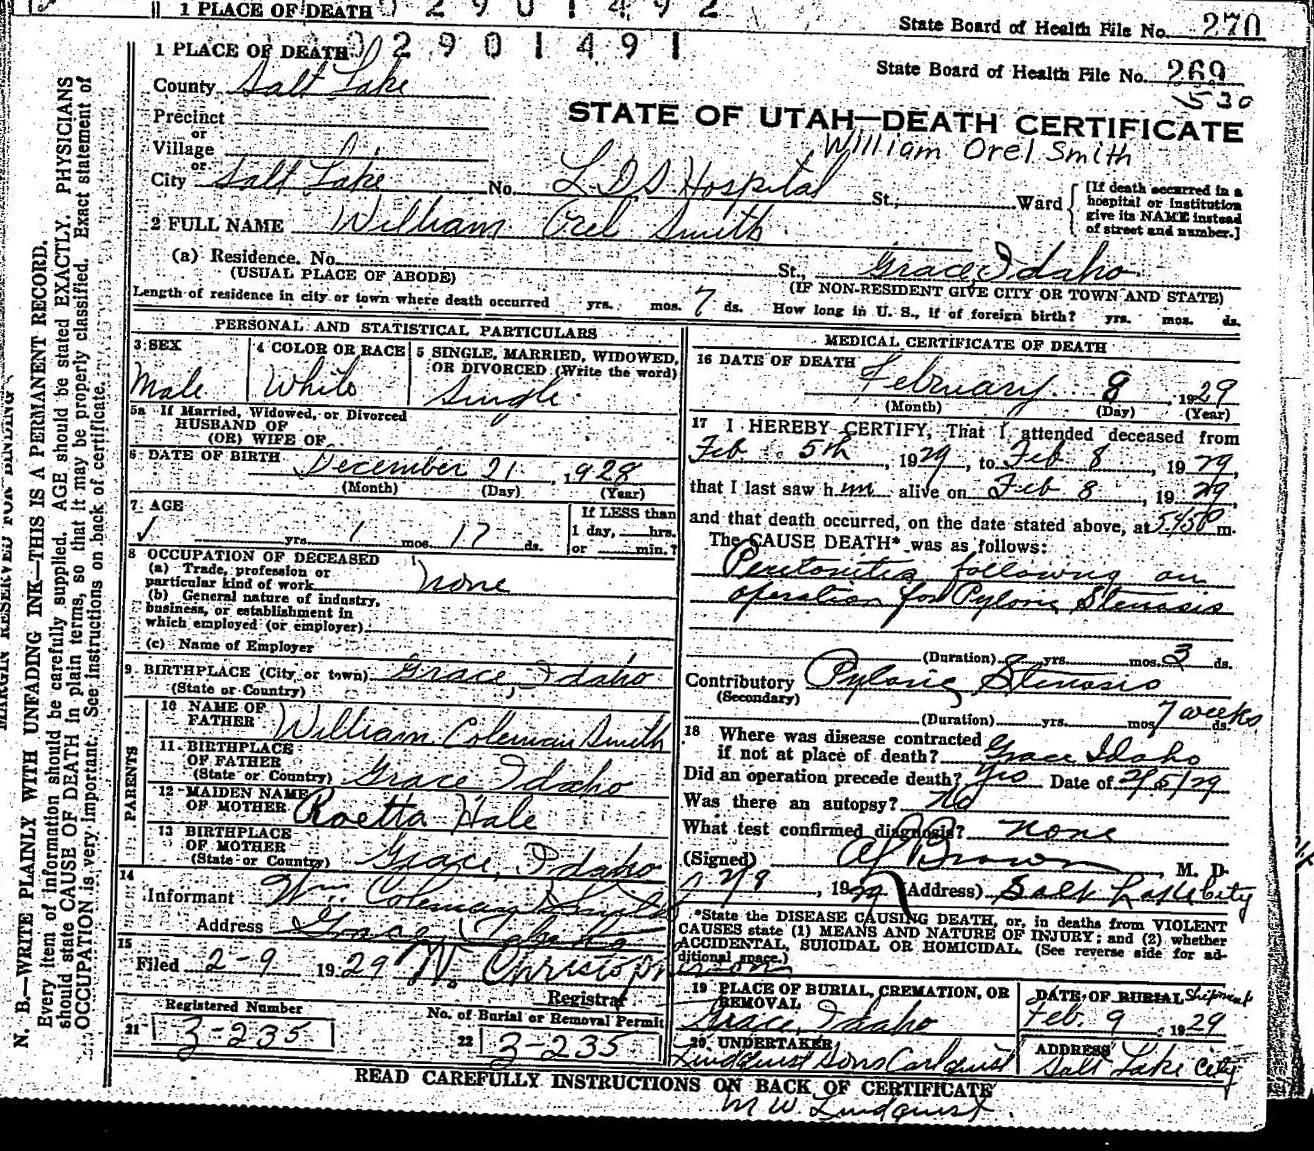 1 PLACE OF DEATH 0 2 9 0 1 4 9 2
State Board of Health File No. 270
1 PLACE OF DEATH 0 2 9 0 1 4 9 1
State Board of Health File No. 269
530
County Salt Lake
STATE OF UTAH—DEATH CERTIFICATE
Precinct
or
Village
William Orel Smith
or
City Salt Lake No. L.D.S Hospital St., Ward
[If death occurred in a hospital or institution give its NAME instead of street and number.]
2 FULL NAME William Orel Smith
(a) Residence. No. St., Grace, Idaho
(USUAL PLACE OF ABODE) (IF NON-RESIDENT GIVE CITY OR TOWN AND STATE)
Length of residence in city or town where death occurred yrs. mos. 7 ds. How long in U. S., if of foreign birth? yrs. mos. ds.
PERSONAL AND STATISTICAL PARTICULARS
3 SEX
Male
4 COLOR OR RACE
White
5 SINGLE, MARRIED, WIDOWED, OR DIVORCED (Write the word)
Single
5a If Married, Widowed, or Divorced
HUSBAND OF
(OR) WIFE OF
6 DATE OF BIRTH December 21, 1928
(Month) (Day) (Year)
7 AGE
yrs. 1 mos. 17 ds.
If LESS than
1 day, hrs.
or min.?
8 OCCUPATION OF DECEASED
(a) Trade, profession or
particular kind of work none
(b) General nature of industry,
business, or establishment in
which employed (or employer)
(c) Name of Employer
9 BIRTHPLACE (City or town) Grace, Idaho
(State or Country)
PARENTS
10 NAME OF
FATHER William Coleman Smith
11 BIRTHPLACE
OF FATHER
(State or Country) Grace Idaho
12 MAIDEN NAME
OF MOTHER Roetta Hale
13 BIRTHPLACE
OF MOTHER
(State or Country) Grace, Idaho
14
Informant Wm. Coleman Smith
Address Grace Idaho
15
Filed 2-9 1929 W. Christopherson
Registrar
Registered Number
21 3-235
No. of Burial or Removal Permit
22 3-235
MEDICAL CERTIFICATE OF DEATH
16 DATE OF DEATH
February 8, 1929
(Month) (Day) (Year)
17 I HEREBY CERTIFY, That I attended deceased from
Feb 5th, 1929, to Feb 8, 1929,
that I last saw him alive on Feb 8, 1929,
and that death occurred, on the date stated above, at 5:45P m.
The CAUSE DEATH* was as follows:
Peritonitis following an
operation for Pyloric Stenosis
(Duration) yrs. mos. 3 ds.
Contributory Pyloric Stenosis
(Secondary)
(Duration) yrs. mos. 7 weeks ds.
18 Where was disease contracted
if not at place of death? Grace Idaho
Did an operation precede death? Yes Date of 2/5/29
Was there an autopsy? No
What test confirmed diagnosis? none
(Signed) Brown, M. D.
2/9, 1929 (Address) Salt Lake City
*State the DISEASE CAUSING DEATH, or, in deaths from VIOLENT
CAUSES state (1) MEANS AND NATURE OF INJURY; and (2) whether
ACCIDENTAL, SUICIDAL OR HOMICIDAL. (See reverse side for ad-
ditional space.)
19 PLACE OF BURIAL, CREMATION, OR
REMOVAL
Grace, Idaho
DATE OF BURIAL Shipment
Feb. 9, 1929
20 UNDERTAKER
Lindquist Sons Carlquist
ADDRESS
Salt Lake City
READ CAREFULLY INSTRUCTIONS ON BACK OF CERTIFICATE
M W Lindquist
MARGIN RESERVED FOR BINDING
N. B.—WRITE PLAINLY WITH UNFADING INK—THIS IS A PERMANENT RECORD.
Every item of information should be carefully supplied. AGE should be stated EXACTLY. PHYSICIANS
should state CAUSE OF DEATH in plain terms, so that it may be properly classified. Exact statement of
OCCUPATION is very important. See instructions on back of certificate.